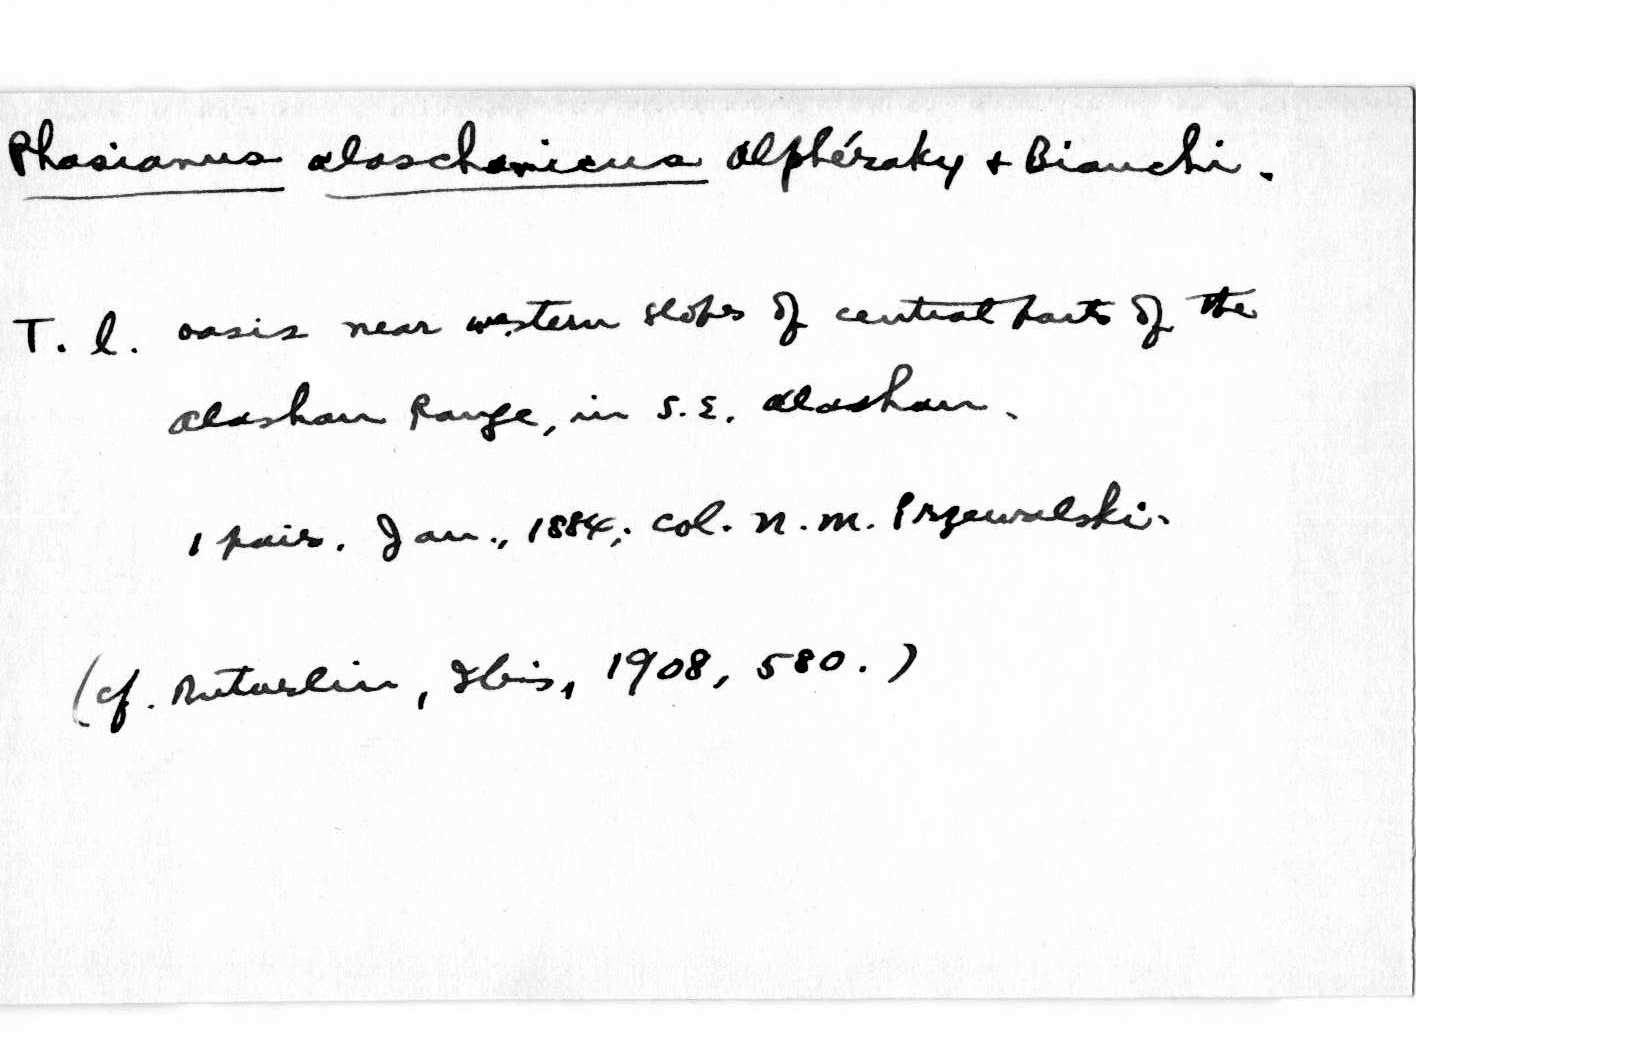 Phasianus alaschanicus Alphéraky + Bianchi.
T. l. oasis near western slopes of central parts of the
Alashan Range, in S.E. Alashan.
1 pair. Jan., 1884; col. N. M. Przewalski.
(cf. Buturlin, Ibis, 1908, 580.)